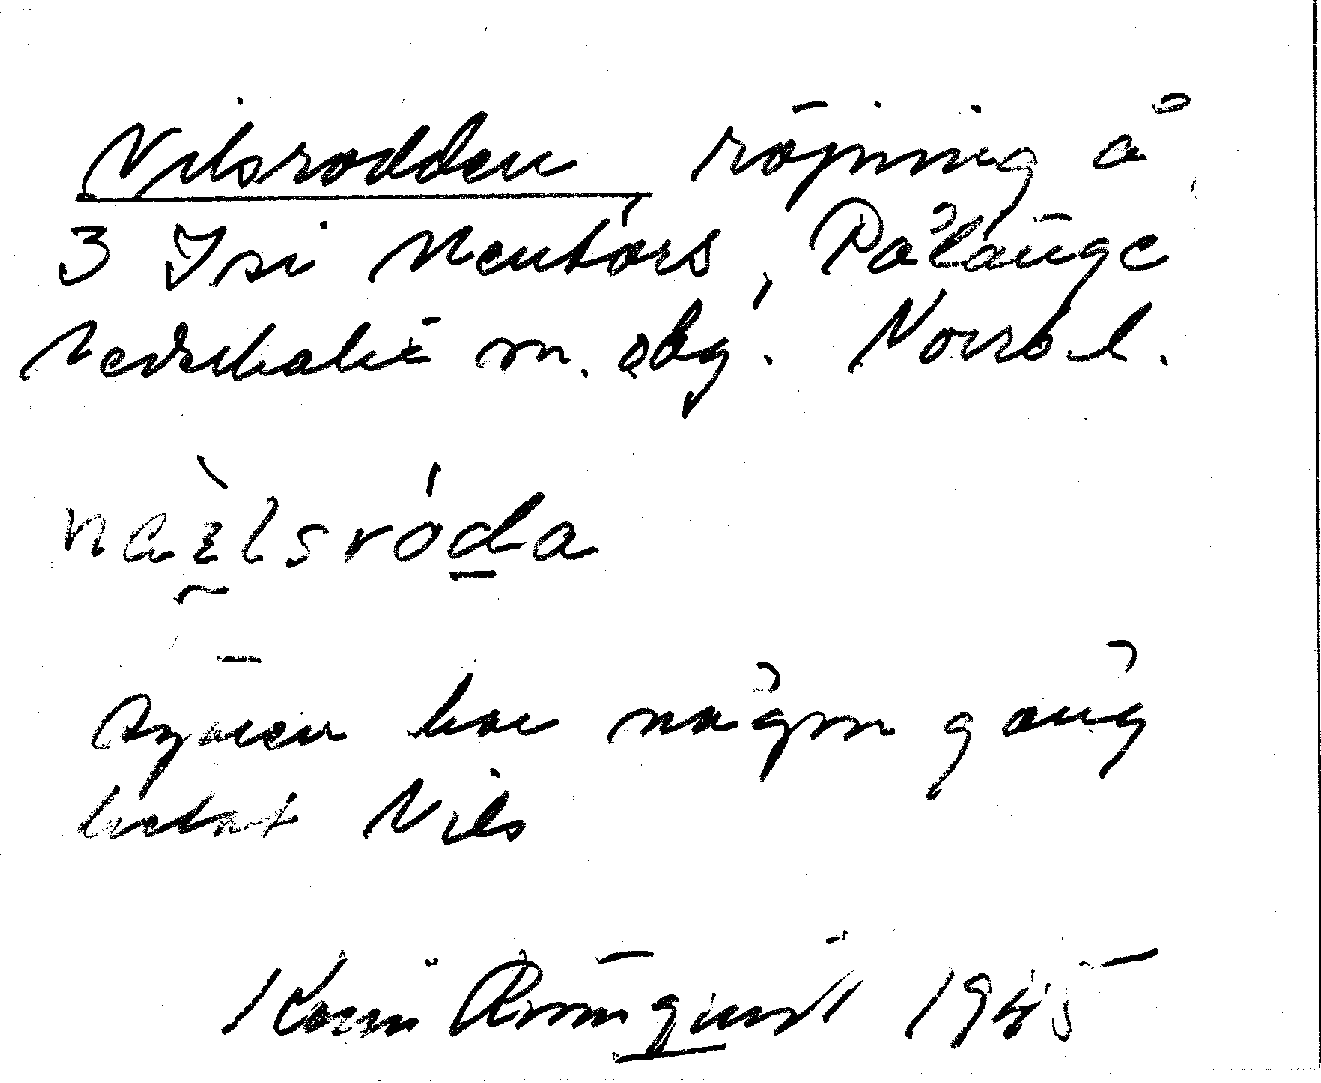 Nilsrodden röjning å
3 Isi Mentörs, Pålänge
Nederkalix m. obg. Norrb l.
nɑɪ̯̀lsróda
ägaren har någon gång
hetat Nils
Karin Rönnqvist 1945